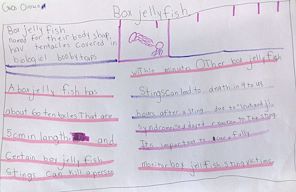 Box jelly fish
Box jelly fish
named for their body shap,
hav tentacles covered in
biological booby traps
A box jelly fish has
about 60 tentacles That are
5cm in length and
Certain box jelly fish
Stings Can kill a person
within minute OTher box Jelly fish
Stings Can led to death in 4 to
hours after a sting due to
syndrome
It's important to
monitor box jellfish sting victims